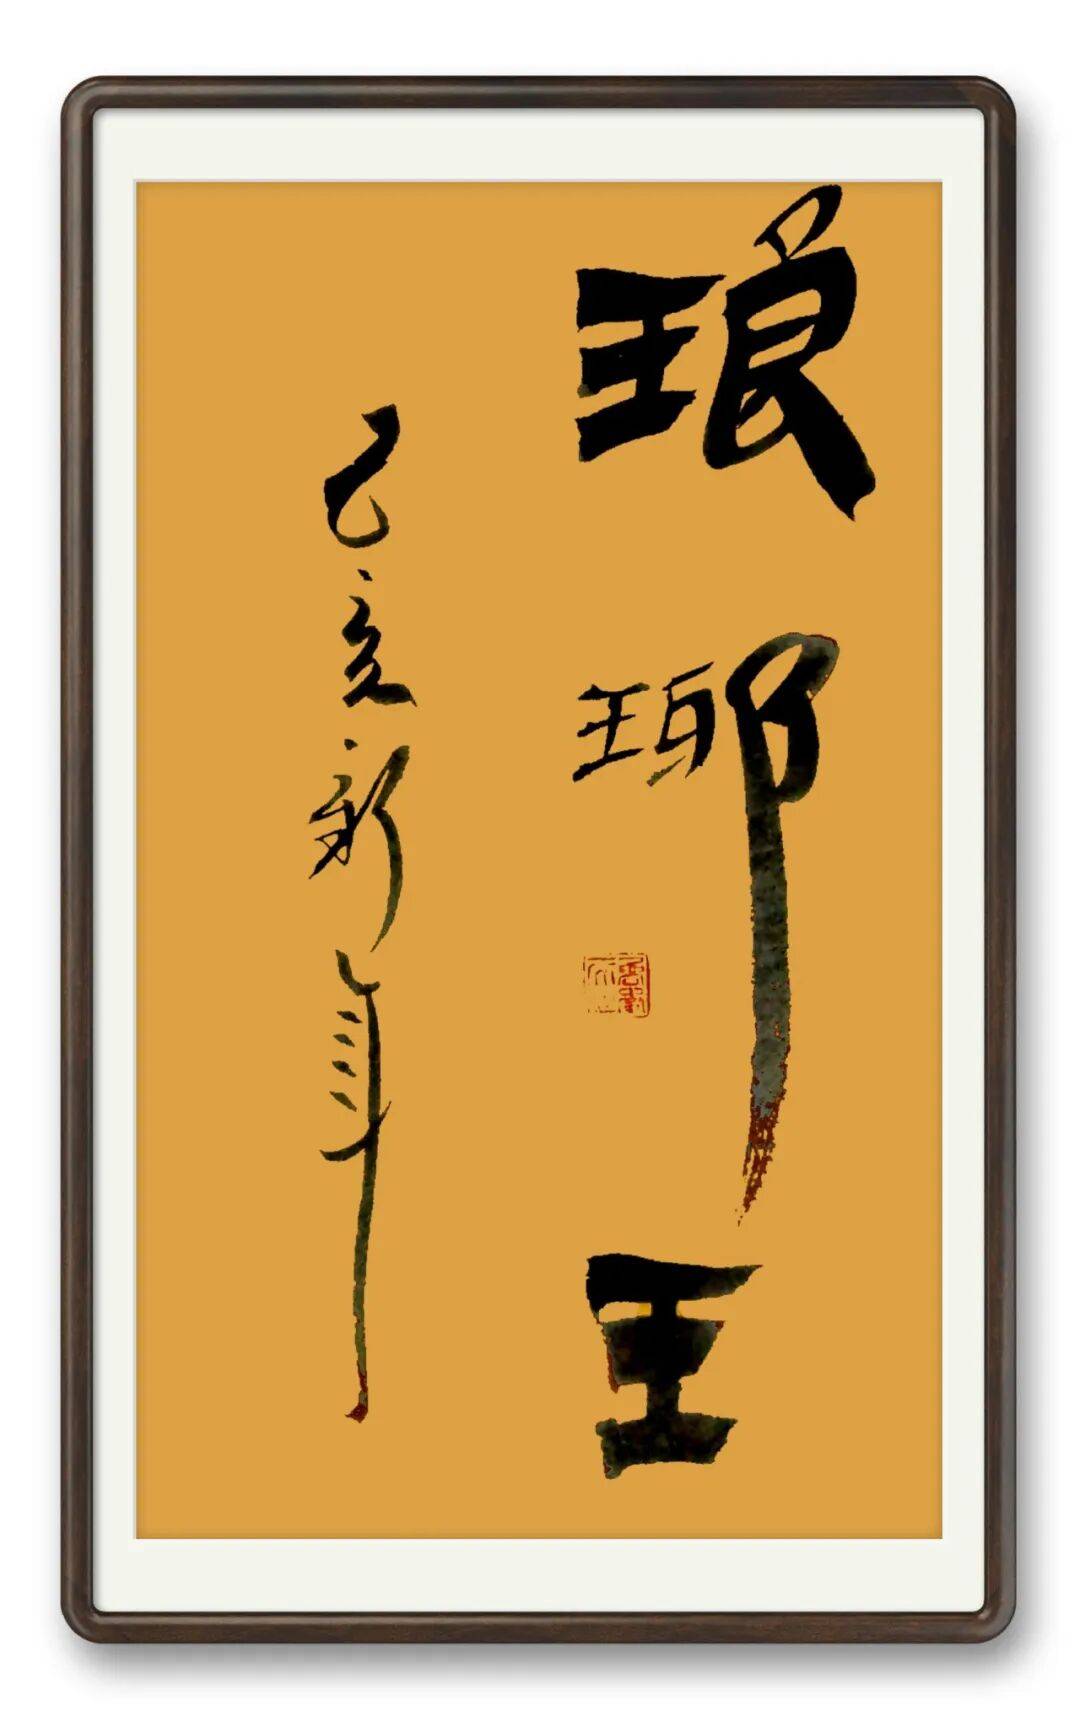 琅琊王
己亥新年